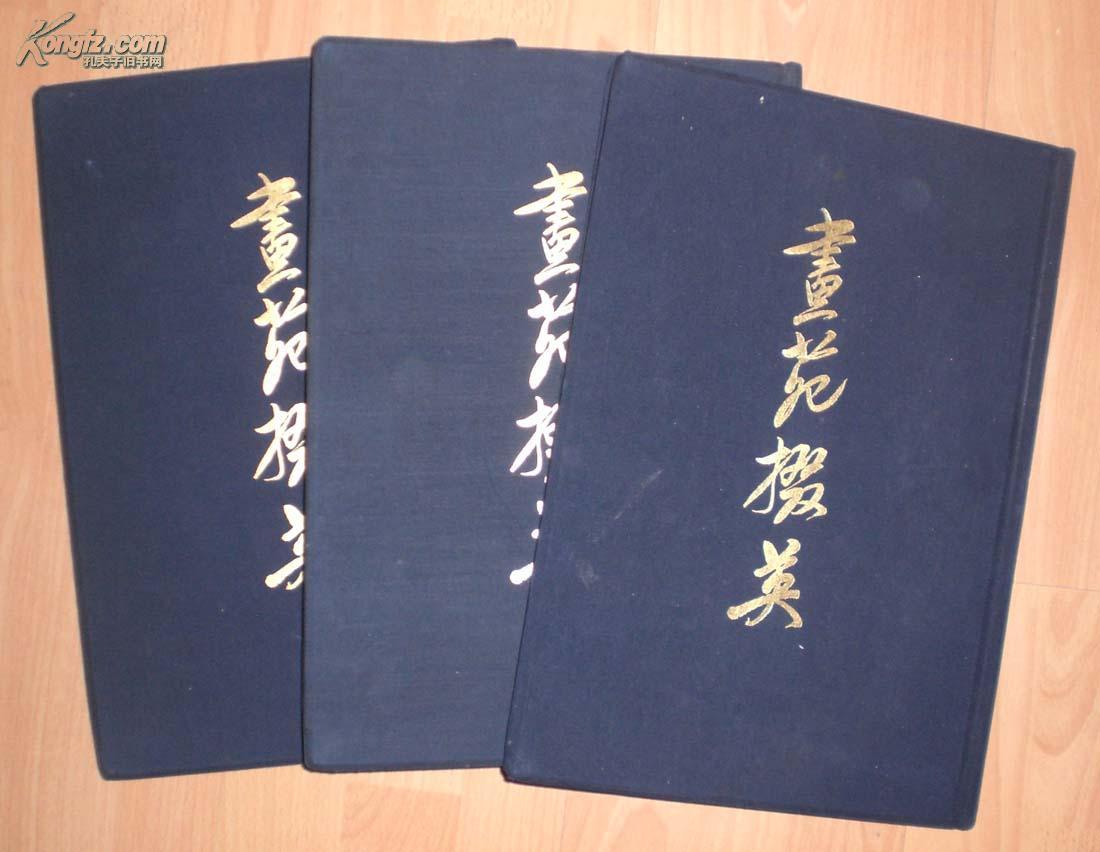 Kongfz.com
孔夫子旧书网
畫苑掇英
畫苑掇英
畫苑掇英